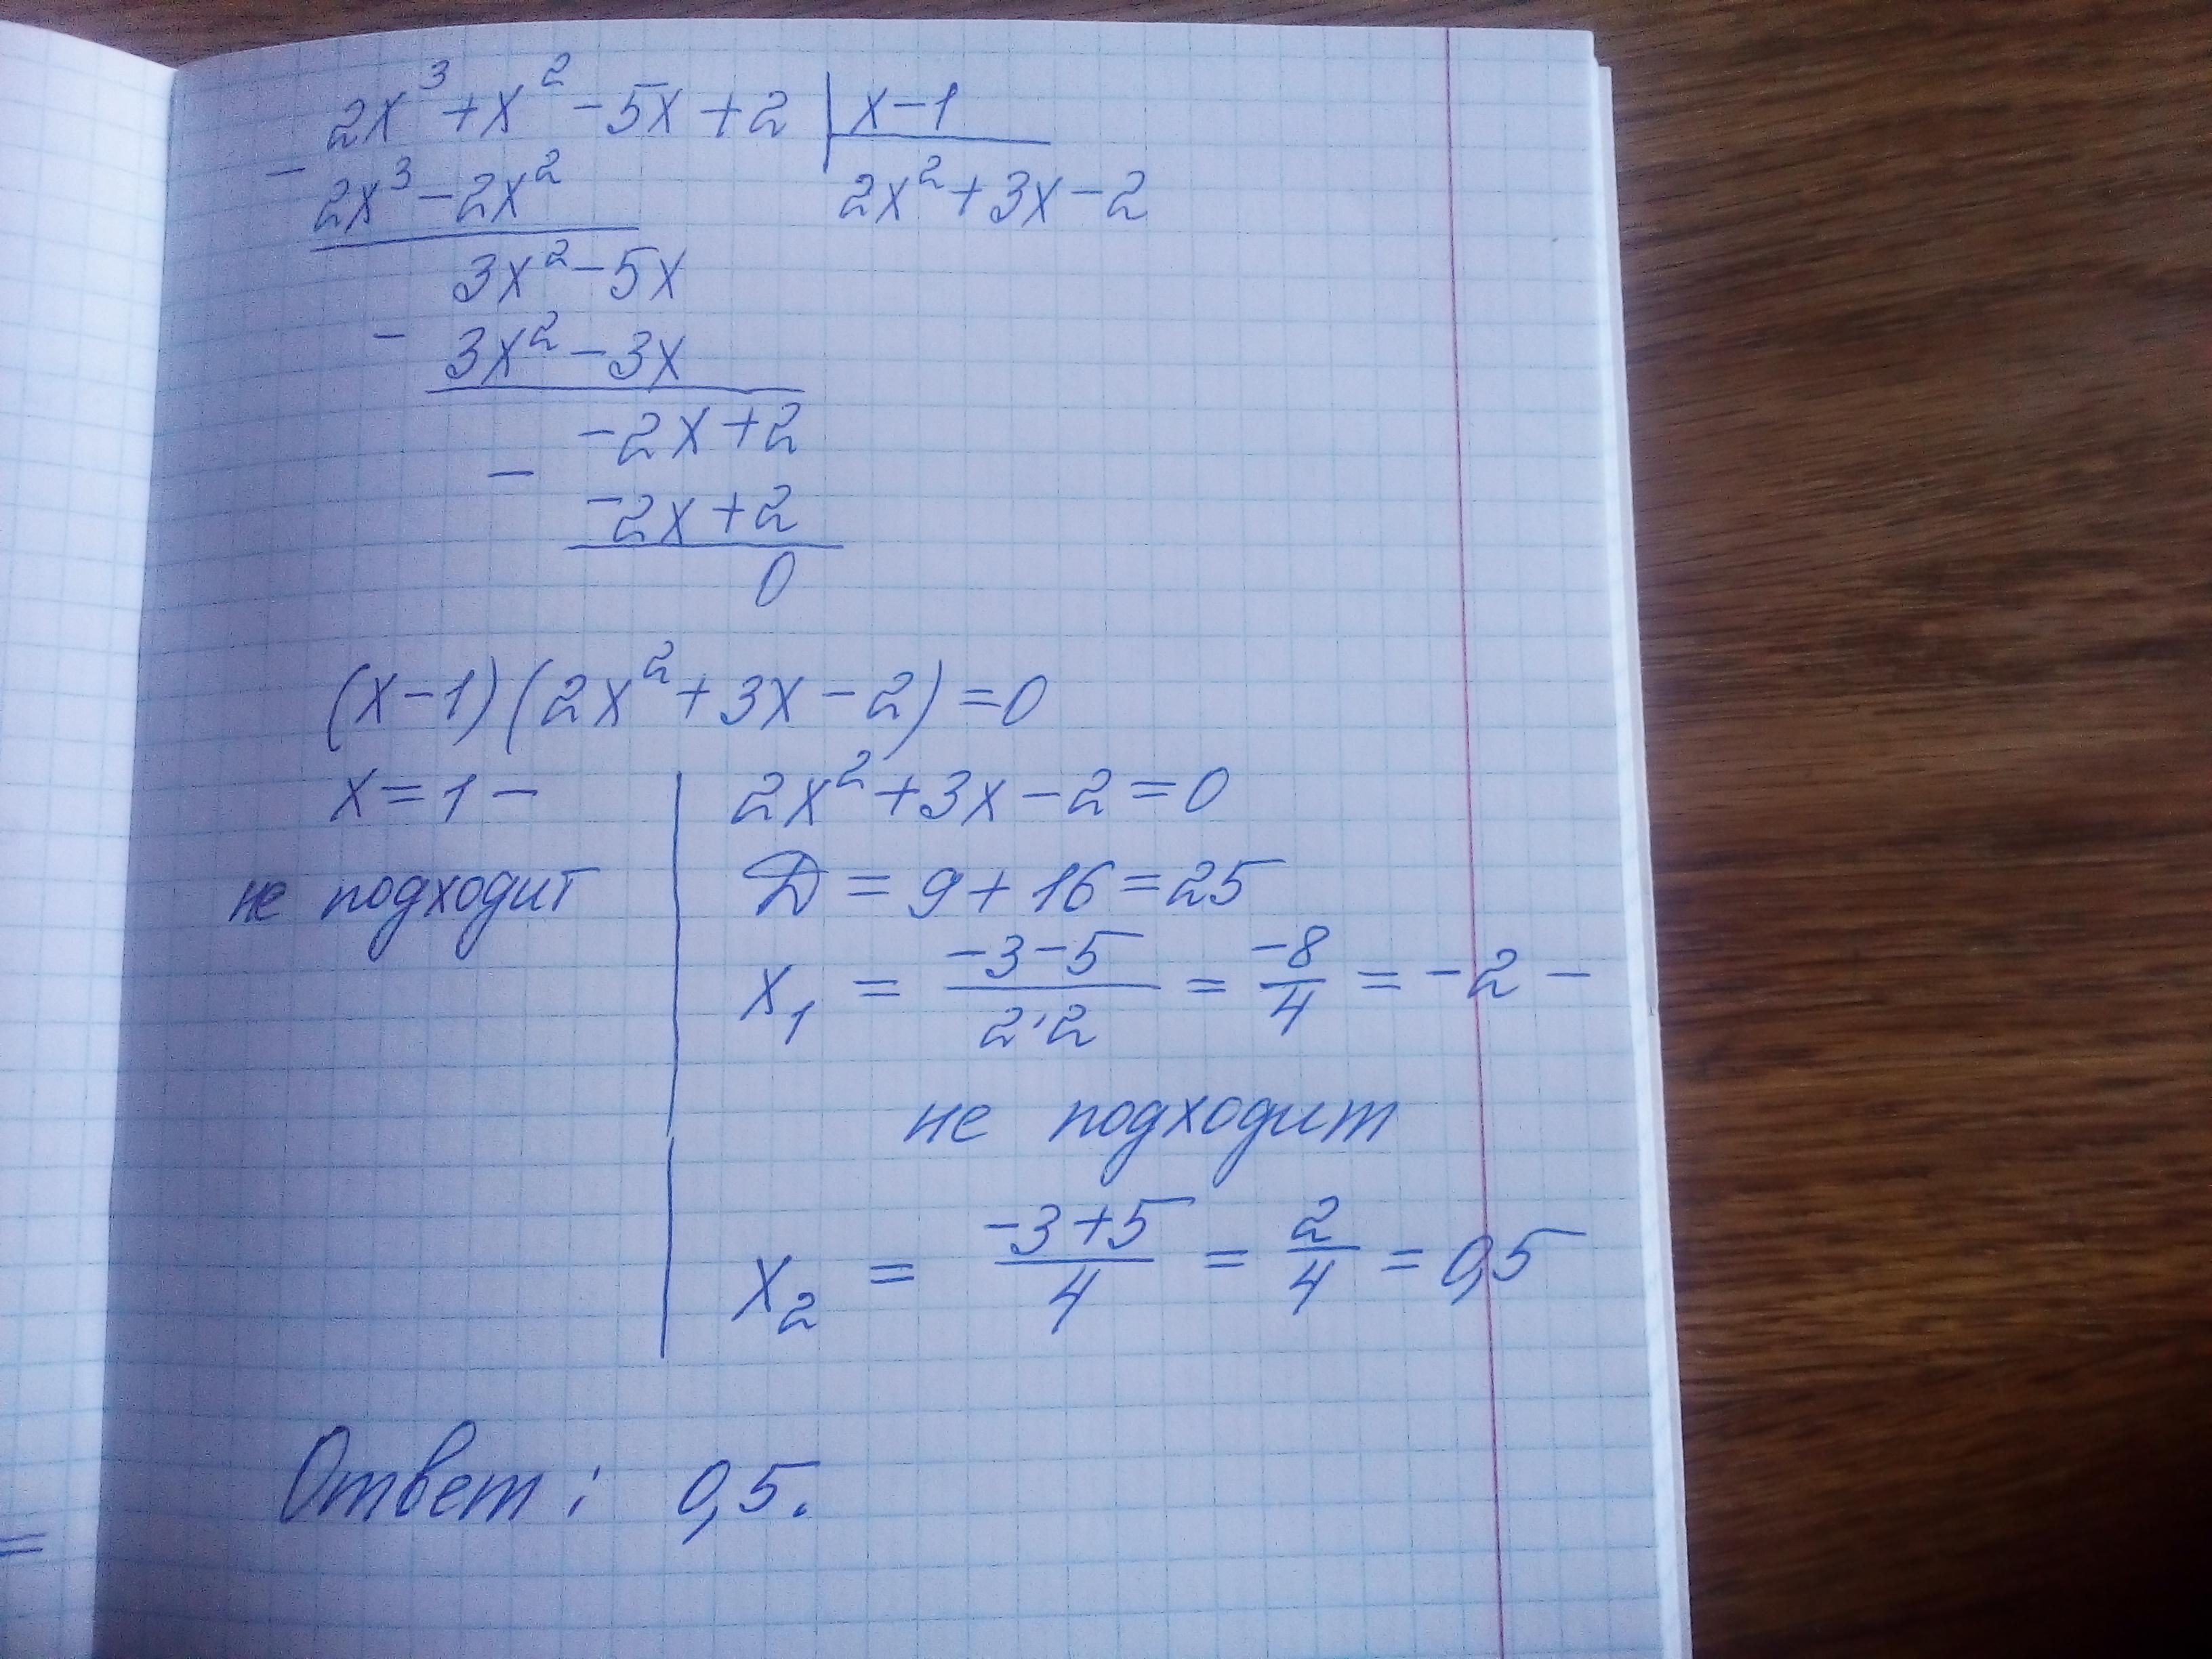 2x³ + x² - 5x + 2 | x - 1
- 2x³ - 2x² 2x² + 3x - 2
3x² - 5x
- 3x² - 3x
-2x + 2
- -2x + 2
0
(x - 1)(2x² + 3x - 2) = 0
x = 1 -
не подходит
2x² + 3x - 2 = 0
D = 9 + 16 = 25
x₁ = (-3-5)/(2·2) = -8/4 = -2 -
не подходит
x₂ = (-3+5)/4 = 2/4 = 0,5
Ответ: 0,5.
=